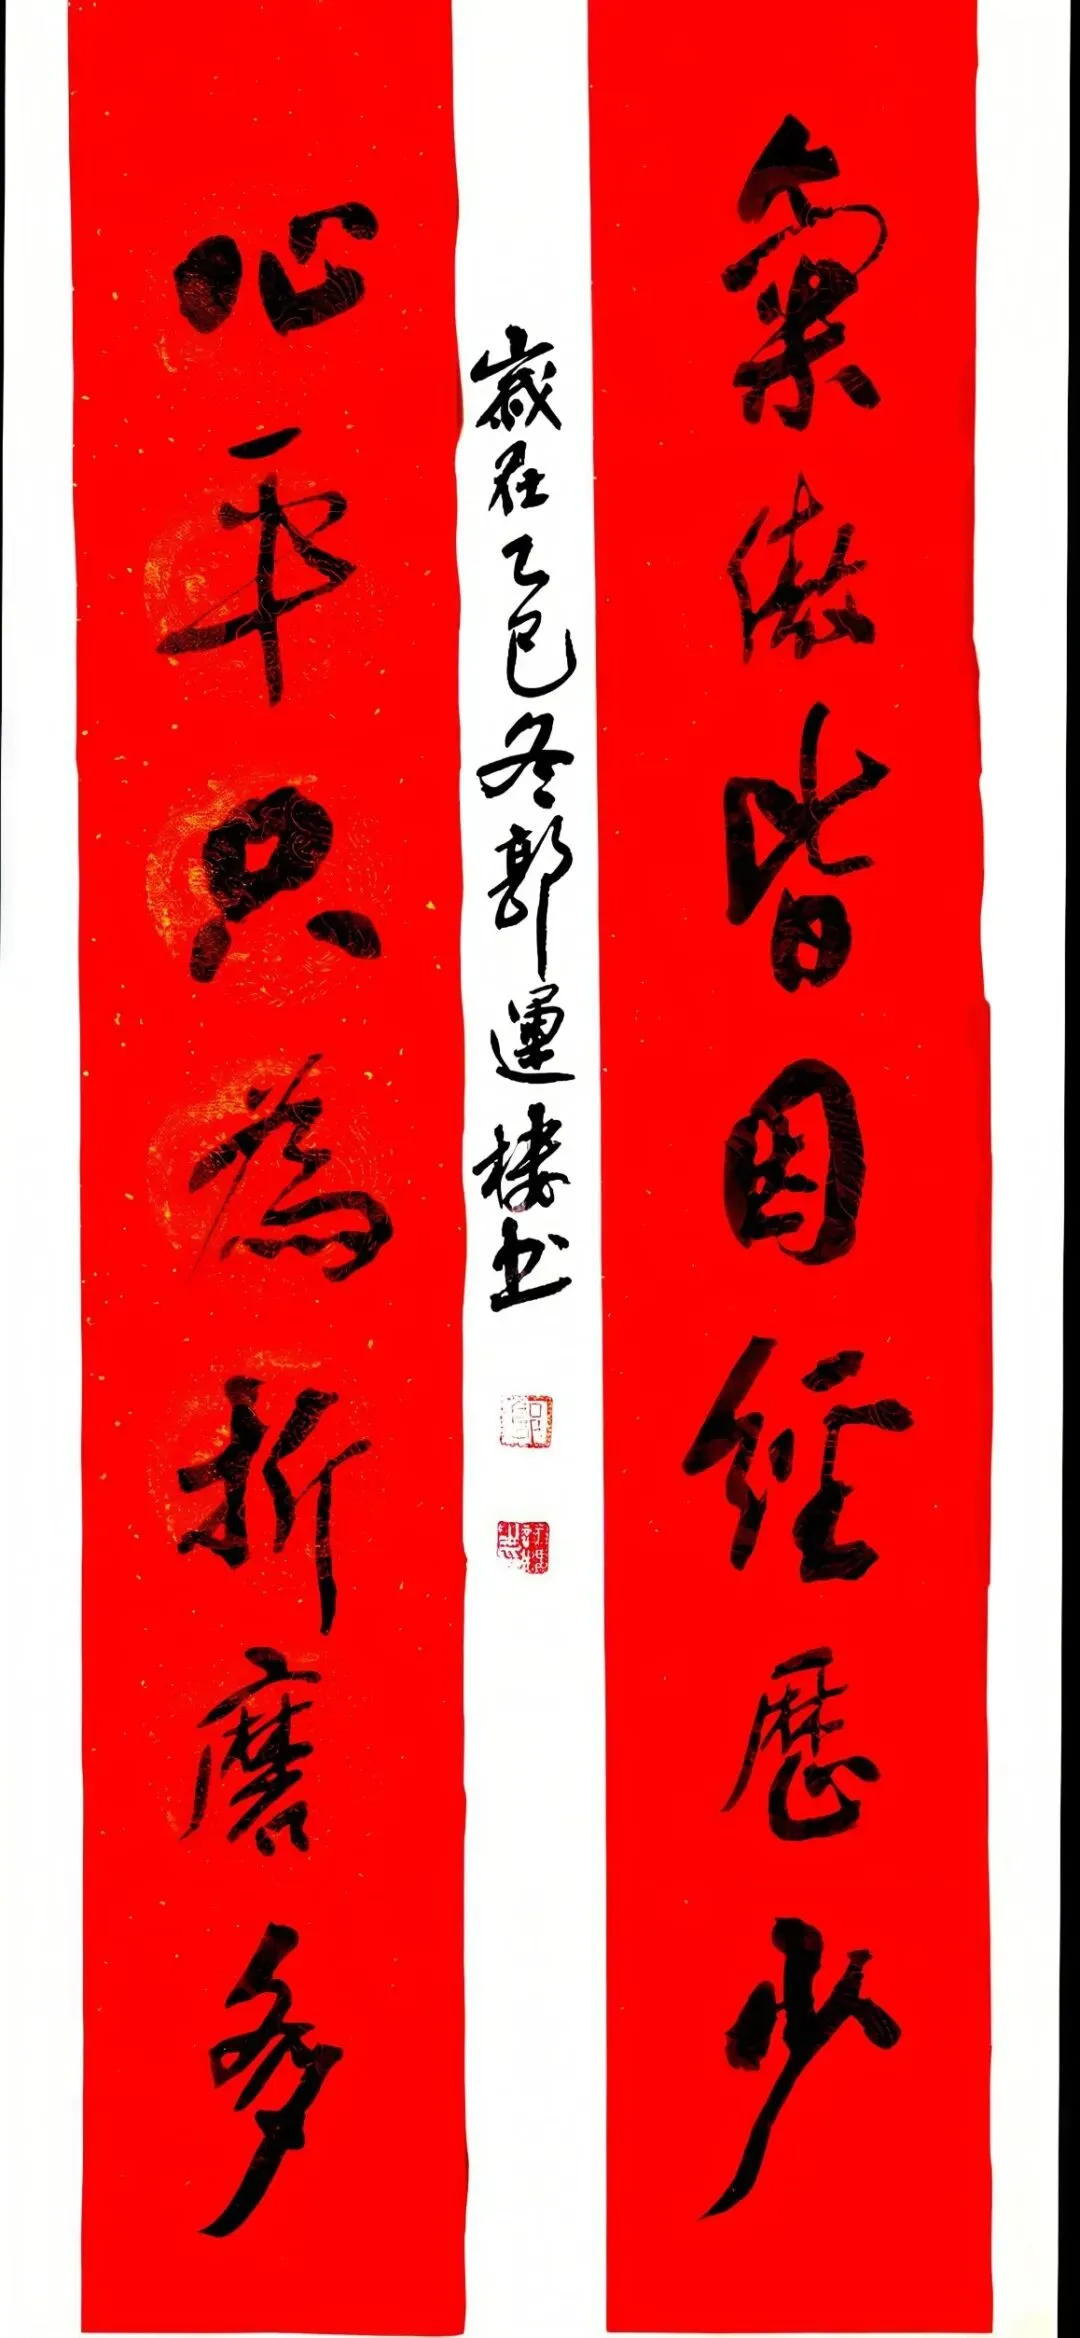 氣傲皆因經歷少
心平只為折磨多
歲在乙巳冬郭運樓書